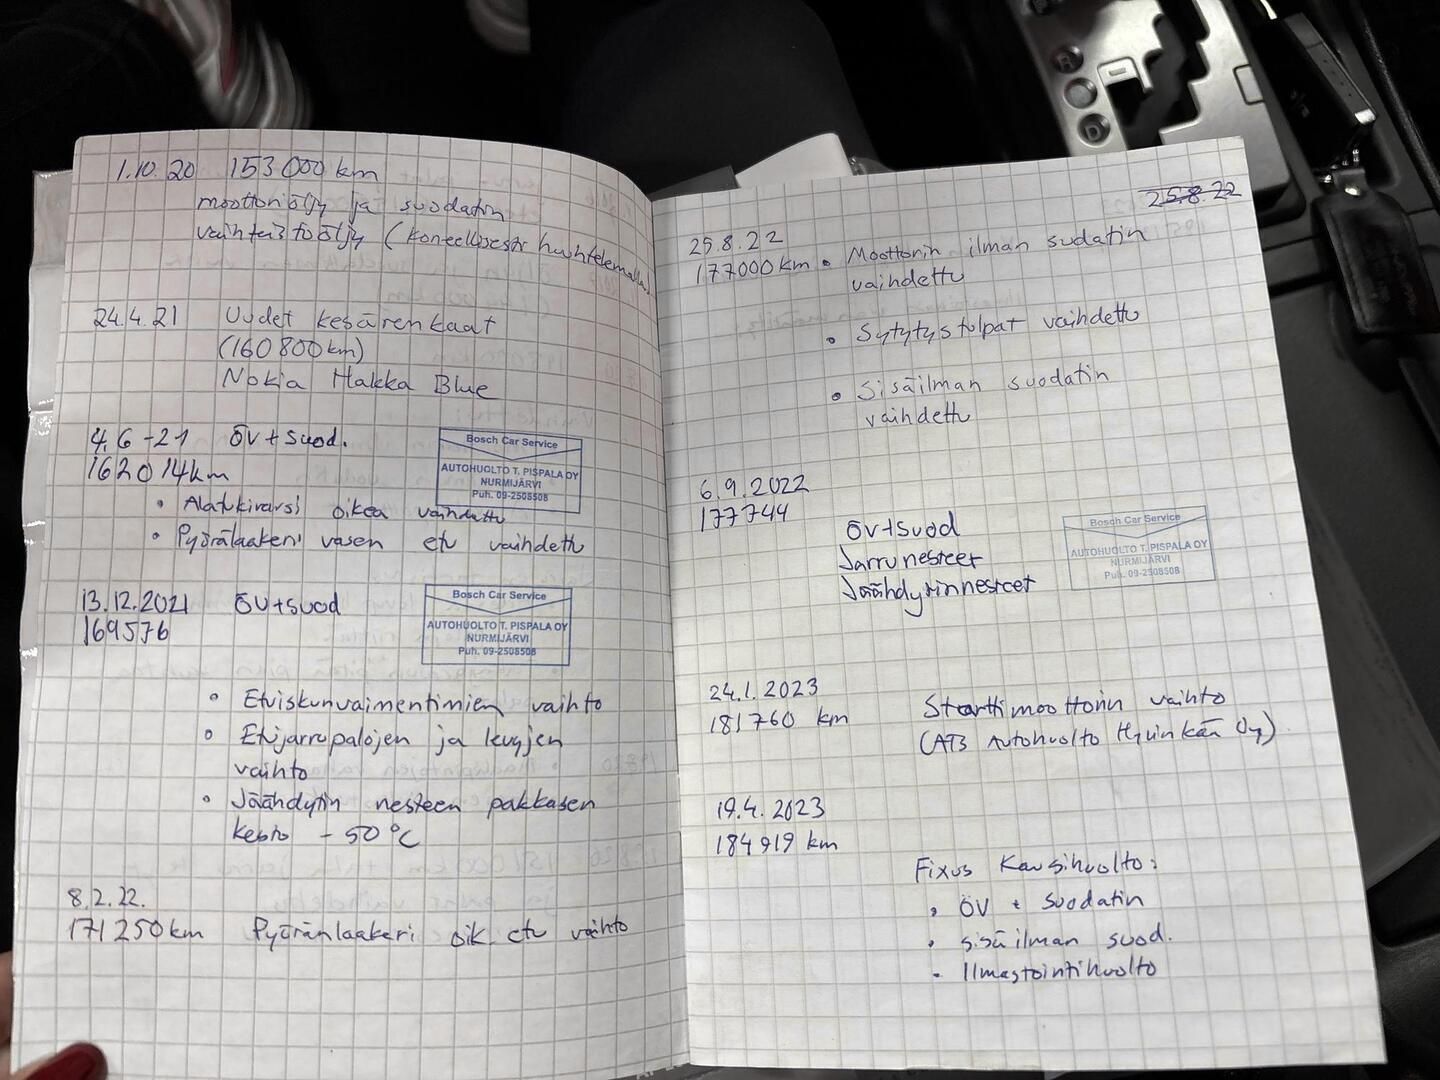 1.10.20 153 000 km
moottoriöljy ja suodatin
vaihteistoöljy (koneellisesti huuhtelemalla)
24.4.21 Uudet kesärenkaat
(160 800 km)
Nokia Hakka Blue
4.6-21 ÖV + suod.
162 014 km
• Alatukivarsi oikea vaihdettu
• Pyörälaakeri vasen etu vaihdettu
Bosch Car Service
AUTOHUOLTO T. PISPALA OY
NURMIJÄRVI
Puh. 09-2508508
13.12.2021 ÖV+suod
169576
Bosch Car Service
AUTOHUOLTO T. PISPALA OY
NURMIJÄRVI
Puh. 09-2508508
• Etuiskunvaimentimien vaihto
• Etujarrupalojen ja levyjen
vaihto
• Jäähdytin nesteen pakkasen
kesto - 50 °C
8.2.22.
171 250 km Pyöränlaakeri oik. etu vaihto
25.8.22
25.8.22
177000 km • Moottorin ilman sudatin
vaihdettu
• Sytytystulpat vaihdettu
• Sisäilman suodatin
vaihdettu
6.9.2022
177744
ÖV+suod
Jarrunesteet
Jäähdytinnesteet
Bosch Car Service
AUTOHUOLTO T. PISPALA OY
NURMIJÄRVI
Puh. 09-2508508
24.1.2023
181760 km Starttimoottorin vaihto
(ATB Autohuolto Hyvinkään Oy)
19.4.2023
184919 km
Fixus Kausihuolto:
• ÖV + suodatin
• sisäilman suod.
• Ilmastointihuolto
R
D